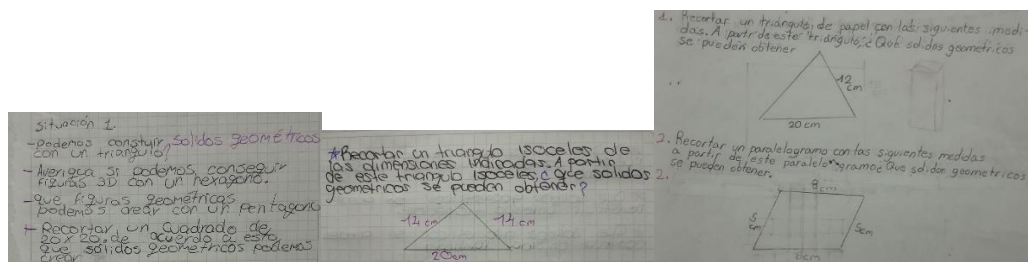 Situación 1.
-Podemos constuir, solidos geométricos
con un triangulo?
- Averigua si podemos conseguir
figuras 3D con un hexagono.
-que figuras geometricas
podemos crear con un pentagono
- Recortar un cuadrado de
20 x 20. de acuerdo a esto
que sólidos geometricos podemos
crear
*Recortar un triangulo isoceles de
las dimensiones indicadas. A partir
de este triangulo isoceles, ¿ que solidos
geometricos se pueden obtener?
14 cm
14 cm
20cm
1. Recortar un triángulo, de papel con las siguientes medi-
das. A partir de este triángulo, ¿Qué solidos geometricos
se pueden obtener
12
cm
20 cm
3. Recortar un paralelogramo con las siguientes medidas
a partir de este paralelo gramo¿ Qué solidos geometricos
se pueden obtener.
2.
8cm
5
cm
5cm
8cm